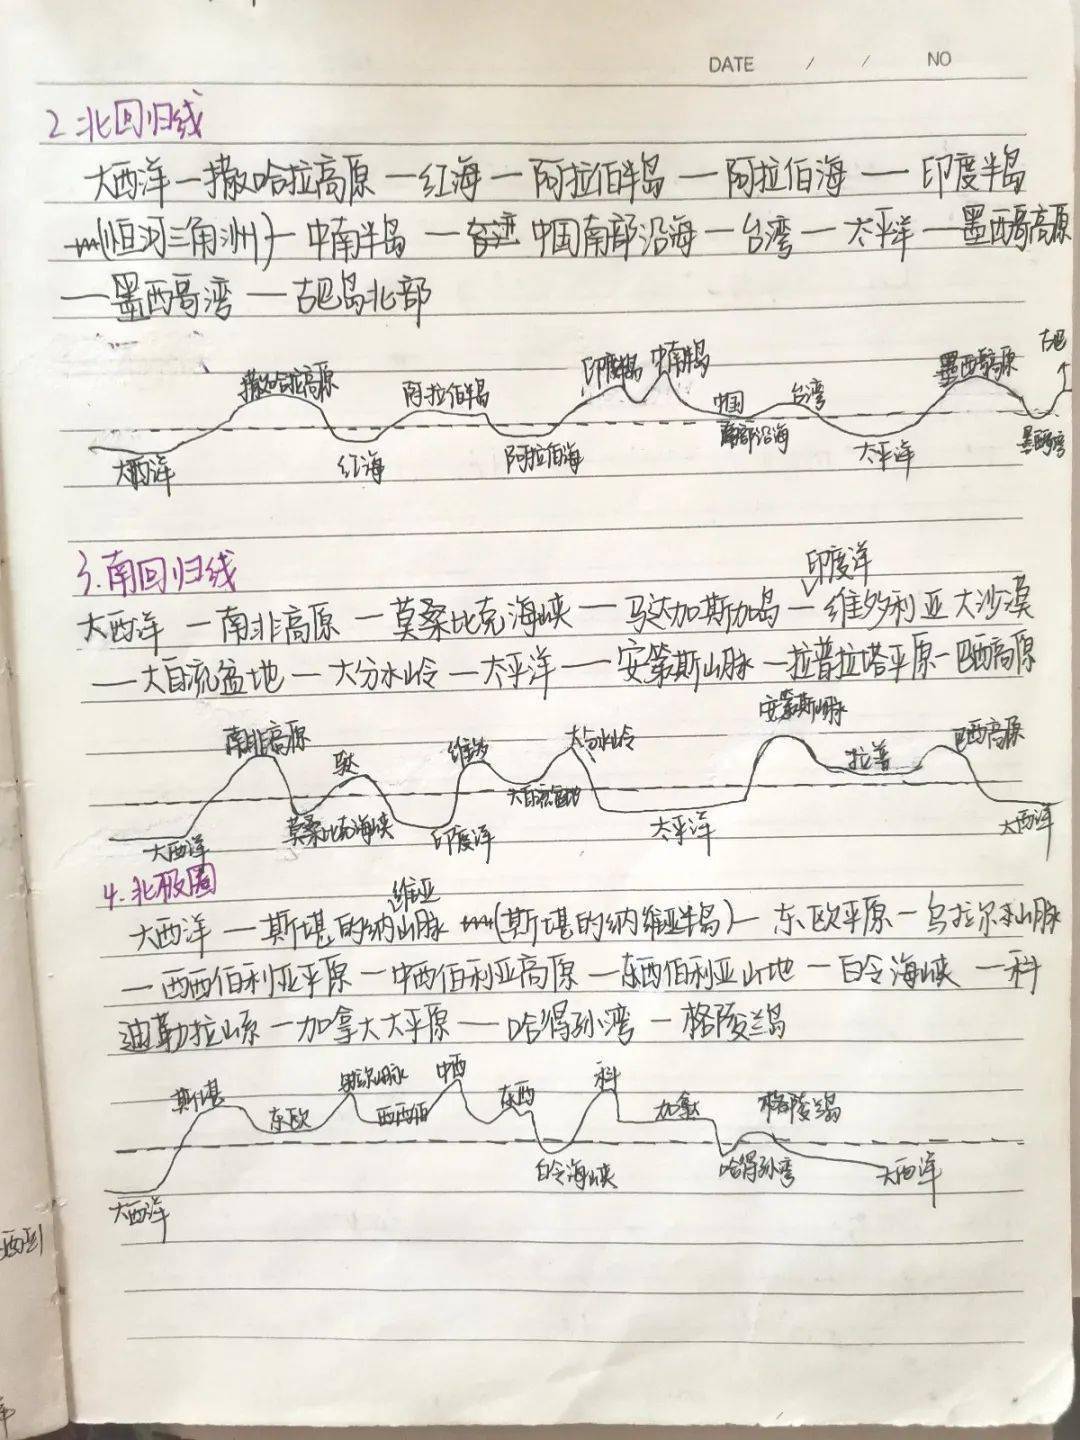 DATE / / NO
2.北回归线
大西洋—撒哈拉高原—红海—阿拉伯半岛—阿拉伯海—印度半岛
(恒河三角洲)—中南半岛—中国南部沿海—台湾—太平洋—墨西哥高原
—墨西哥湾—古巴岛北部
撒哈拉高原 阿拉伯半岛 印度半岛 中南半岛 中国 台湾 墨西哥高原 古巴
大西洋 红海 阿拉伯海 南部沿海 太平洋 墨西哥湾
3.南回归线
印度洋
大西洋—南非高原—莫桑比克海峡—马达加斯加岛—维多利亚大沙漠
—大自流盆地—大分水岭—太平洋—安第斯山脉—拉普拉塔平原—巴西高原
安第斯山脉
南非高原 维多 大分水岭 拉普 巴西高原
大西洋 莫桑比克海峡 印度洋 大自流盆地 太平洋 大西洋
4.北极圈
维亚
大西洋—斯堪的纳山脉(斯堪的纳维亚半岛)—东欧平原—乌拉尔山脉
—西西伯利亚平原—中西伯利亚高原—东西伯利亚山地—白令海峡—科
迪勒拉山系—加拿大大平原—哈得孙湾—格陵兰岛
斯堪 东欧 乌拉尔山脉 西西伯 中西 东西 科 加拿大 格陵兰岛
大西洋 白令海峡 哈得孙湾 大西洋